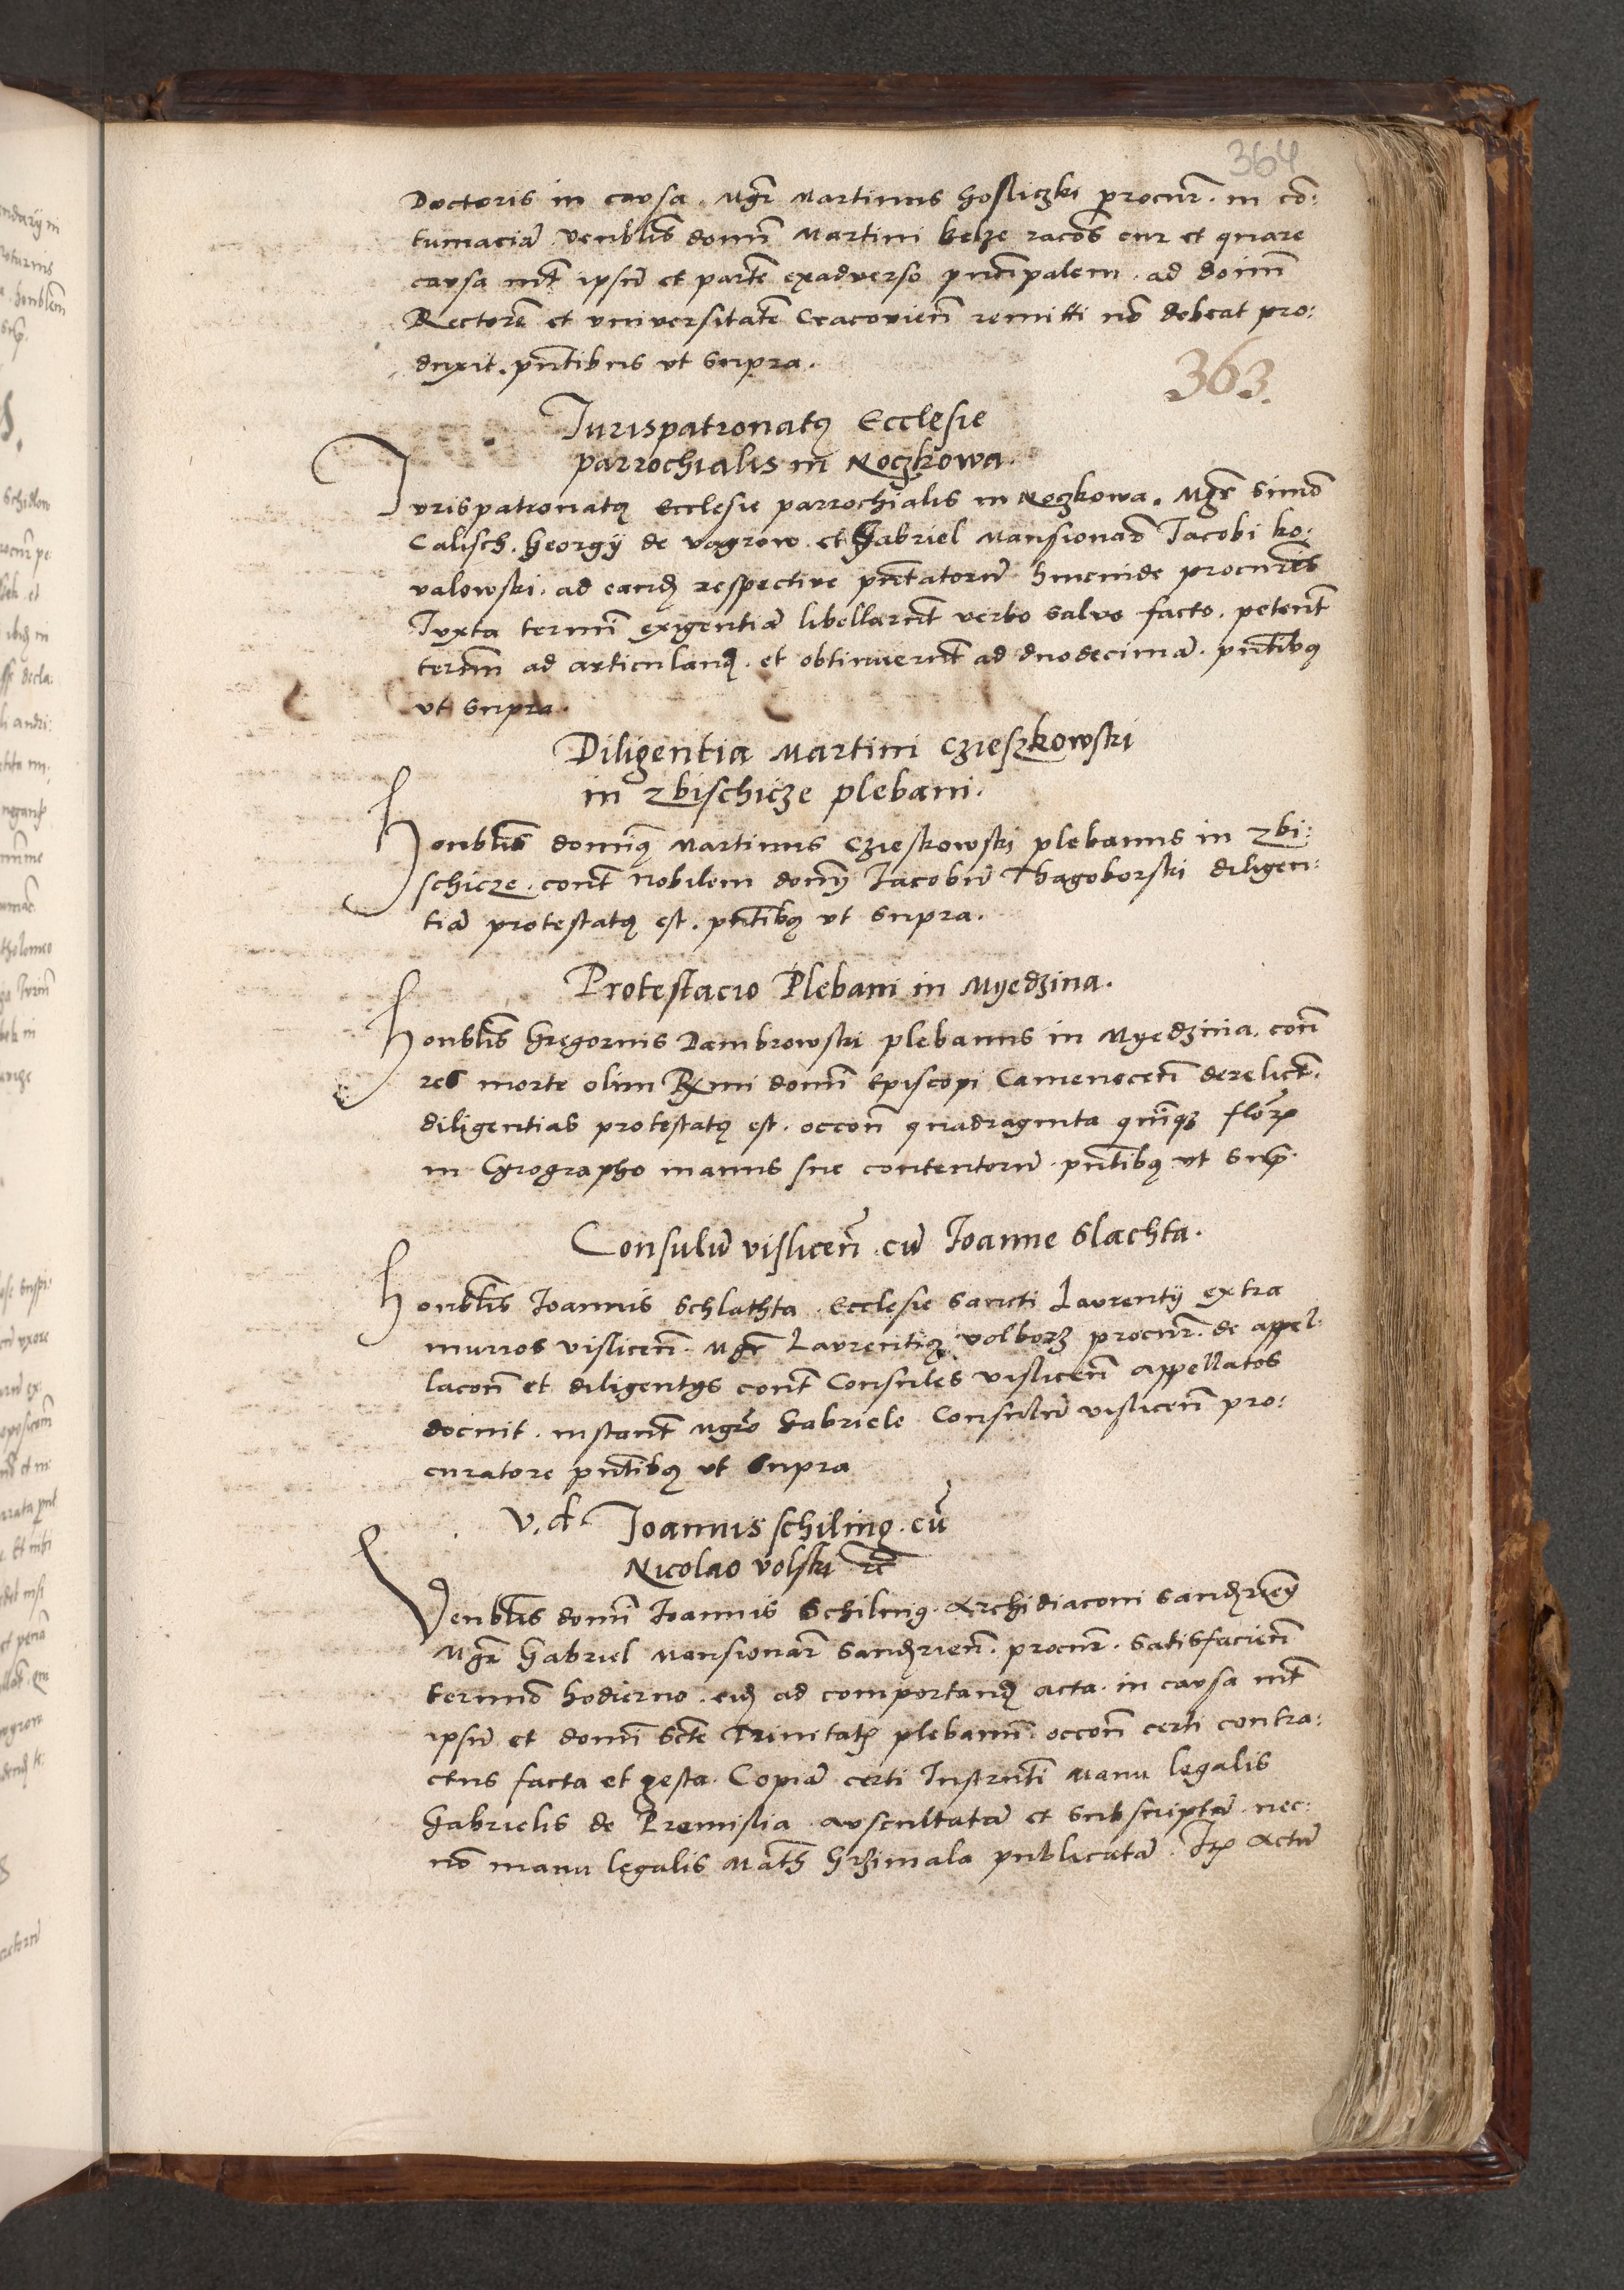 364
Doctoris in causa. Mgr̃ Martinus Gosliczki procur̃. in cõ:
tumaciã venbľis domĩ Martini Belze racoẽs cur et quare
causa int̃ ipsũ et partẽ exadverso principalem. ad doim̃
Rectorẽ et universitatẽ Cracovień remitti nõ debeat pro:
duxit. pñtibus ut supra.
363.
Jurispatronatꝰ Ecclesie
parrochialis in Koczkowa.
Jurispatronatꝰ Ecclesie parrochialis in Koczkowa. Mgr̃ Simõ
Calisch. Georgij de Vagrow. et Gabriel Mansionař Jacobi Ko:
valowski. ad eandẽ respective pñtatorũ hincinde procurẽs
Juxta termĩ exigentiã libellarũt verbo salvo facto. petent̃
termĩ ad articulanď. et obtinuerũt ad duodecimã. pñtibꝰ
ut supra.
Diligentia Martini Czieszkowski
in Zbischicze plebani.
Honbľis dominꝰ Martinus Czieskowski plebanus in Zbi:
schicze. cont̃ Nobilem domĩ Jacobũ Thagoborski diligen:
tiã protestatꝰ est. pñtibꝰ ut supra.
Protestacio Plebani in Myedzina.
Honbľis Gregorius Dambrowski plebanus in Myedzina. con̄
res morte olim Rx̃mi domĩ Episcopi Camenoceń derelict̃.
diligentias protestatꝰ est. occoñ quadraginta quinqꝫ floř
in Cyrographo manus sue contentorũ. pñtibꝰ ut sup̃.
Consulũ visliceń. cũ Joanne Slachta.
Honbľis Joannis Schlathta. Ecclesie Sancti Laurentij extra
muros visliceń. Mgr̃ Laurentiꝰ Volborz procur̃. de appel:
lacoñ et diligentijs cont̃ Consules visliceń appellatos
docuit. instant̃ Mgr̃o Gabriele Consulũ visliceń pro:
curatore pñtibꝰ ut supra
V. d. Joannis Schiling. cũ
Nicolao Volski rc̃
Venbľis domĩ Joannis Schiling. Archidiaconi Sandzień
Mgr̃ Gabriel Mansionař Sandzień. procur̃. satisfacień
terminõ hodierno. eid̃ ad comportanď acta. in causa int̃
ipsũ et domĩ Scte Trinitatꝭ plebanũ. occoñ certi contra:
ctus facta et gesta. Copiã certi Instrũti Manu legalis
Gabrielis de Premislia. auscultatã et subscriptã. nec:
nõ manu legalis Math̃ Grzimala publicatã. Itꝭ actũ